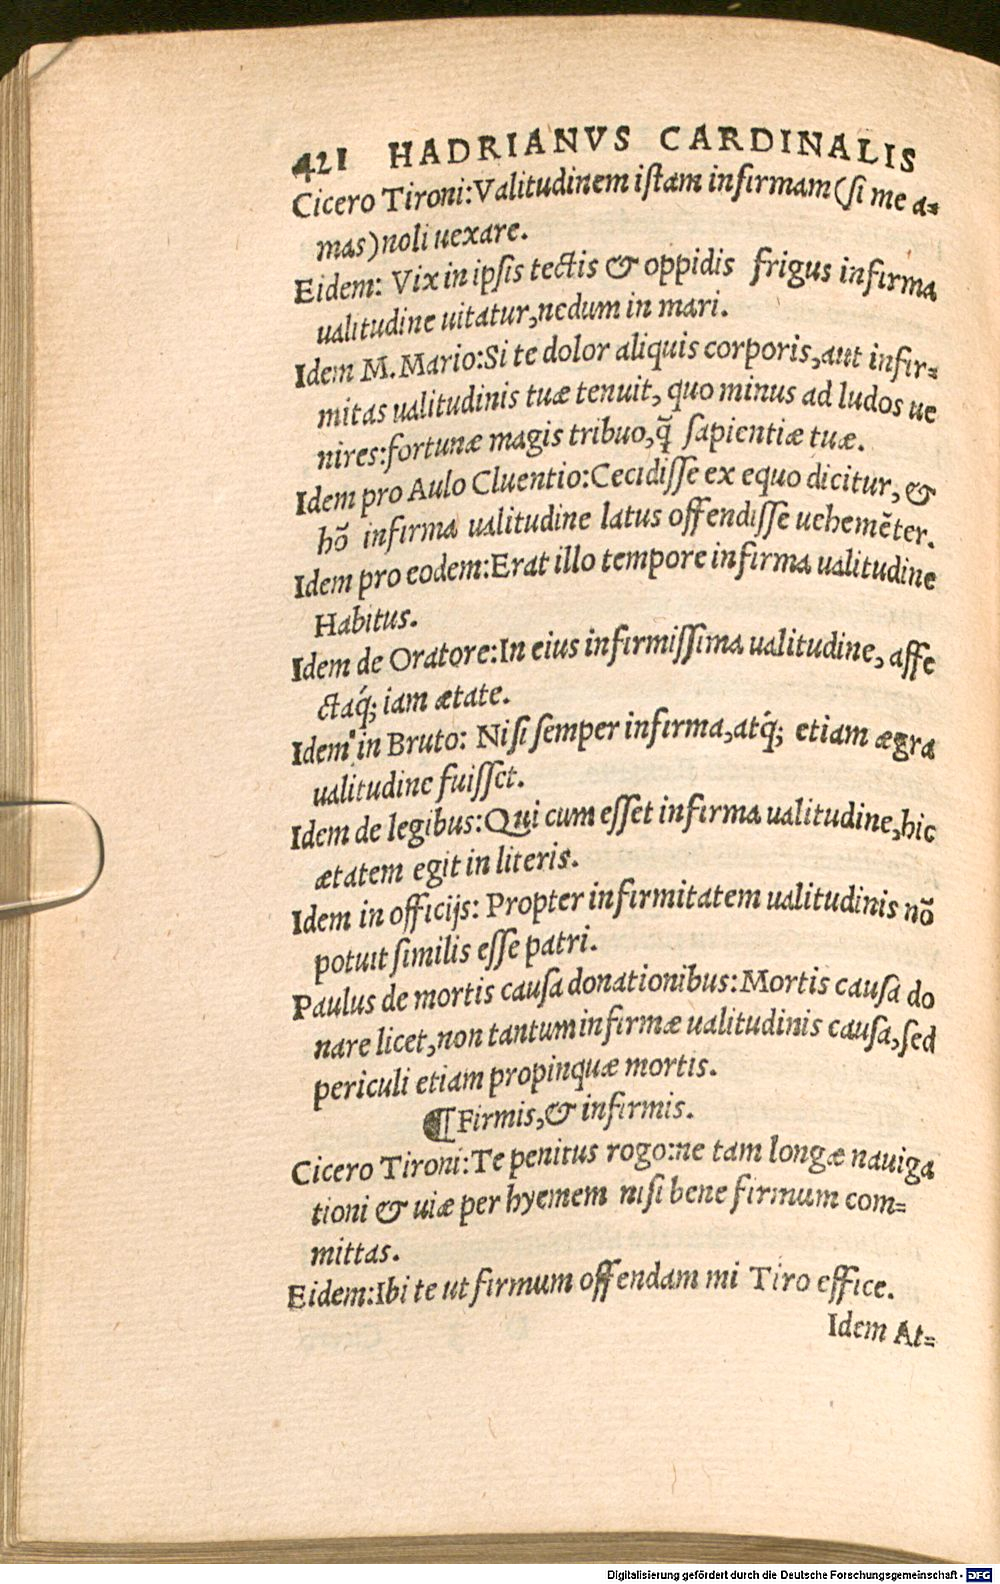 421 HADRIANVS CARDINALIS
Cicero Tironi:Valitudinem iſtam infirmam(ſi me a=
mas)noli uexare.
Eidem: Vix in ipſis tectis & oppidis frigus infirma
ualitudine uitatur,nedum in mari.
Idem M. Mario:Si te dolor aliquis corporis,aut infir=
mitas ualitudinis tuæ tenuit, quo minus ad ludos ue
nires:fortunæ magis tribuo,q̃ ſapientiæ tuæ.
Idem pro Aulo Cluentio:Cecidiſſe ex equo dicitur, &
hõ infirma ualitudine latus offendiſſe uehemẽter.
Idem pro eodem:Erat illo tempore infirma ualitudine
Habitus.
Idem de Oratore:In eius infirmiſſima ualitudine, affe
ctaq́; iam ætate.
Idem in Bruto: Niſi ſemper infirma,atq́; etiam ægra
ualitudine fuiſſet.
Idem de legibus:Qui cum eſſet infirma ualitudine,hic
ætatem egit in literis.
Idem in officijs: Propter infirmitatem ualitudinis nõ
potuit ſimilis eſſe patri.
Paulus de mortis cauſa donationibus:Mortis cauſa do
nare licet,non tantum infirmæ ualitudinis cauſa,ſed
periculi etiam propinquæ mortis.
¶Firmis,& infirmis.
Cicero Tironi:Te penitus rogo:ne tam longæ nauiga
tioni & uiæ per hyemem niſi bene firmum com=
mittas.
Eidem:Ibi te ut firmum offendam mi Tiro effice.
Idem At=
Digitalisierung gefördert durch die Deutsche Forschungsgemeinschaft - DFG